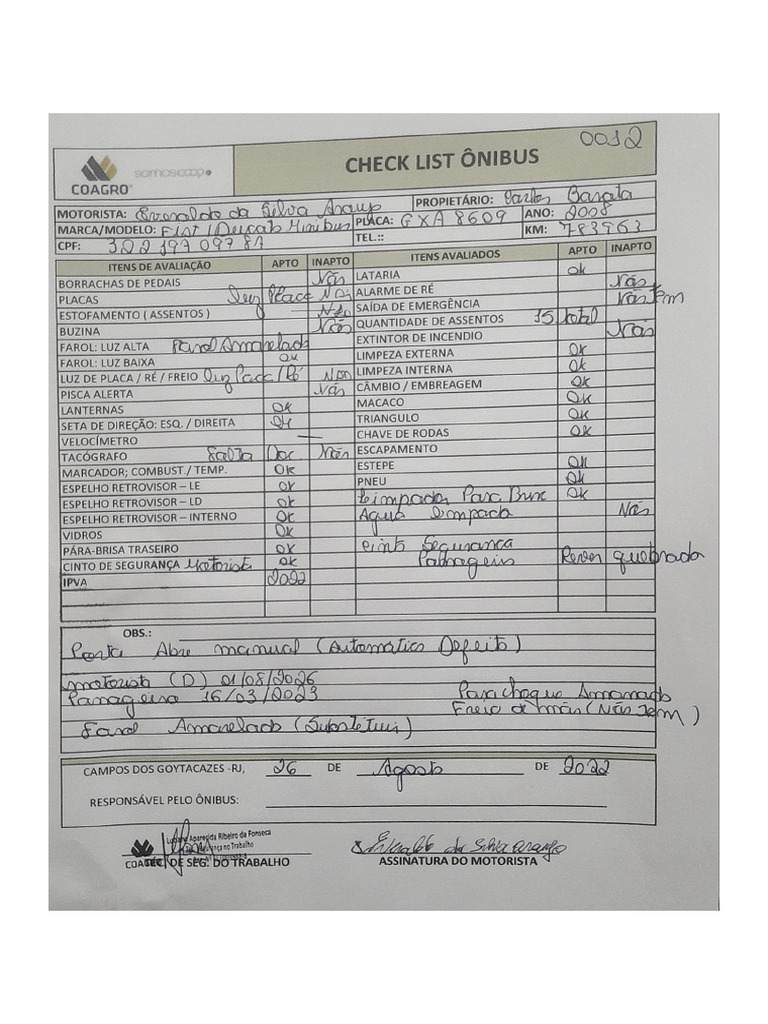 0012
COAGRO
somoscoop
CHECK LIST ÔNIBUS
MOTORISTA: Everaldo da Silva Araujo PROPIETÁRIO: Carlos Barreto
MARCA/MODELO: Fiat/Ducato Minibus PLACA: GXA 8609 ANO: 2008
CPF: 322 197 097 87 TEL.:: KM: 783963
ITENS DE AVALIAÇÃO APTO INAPTO ITENS AVALIADOS APTO INAPTO
BORRACHAS DE PEDAIS Não LATARIA ok
PLACAS luz Placa Não ALARME DE RÉ Não
ESTOFAMENTO ( ASSENTOS ) Não SAÍDA DE EMERGÊNCIA Não tem
BUZINA Não QUANTIDADE DE ASSENTOS 15 total
FAROL: LUZ ALTA Farol Amarelado EXTINTOR DE INCENDIO Não
FAROL: LUZ BAIXA OK LIMPEZA EXTERNA OK
LUZ DE PLACA / RÉ / FREIO luz Placa / Ré Não LIMPEZA INTERNA OK
PISCA ALERTA Não CÂMBIO / EMBREAGEM OK
LANTERNAS OK MACACO OK
SETA DE DIREÇÃO: ESQ. / DIREITA OK TRIANGULO OK
VELOCÍMETRO — CHAVE DE RODAS OK
TACÓGRAFO Falta Doc Não ESCAPAMENTO
MARCADOR; COMBUST./ TEMP. OK ESTEPE OK
ESPELHO RETROVISOR – LE OK PNEU OK
ESPELHO RETROVISOR – LD OK Limpador Para Brise OK
ESPELHO RETROVISOR – INTERNO OK Agua limpado Não
VIDROS OK
PÁRA-BRISA TRASEIRO OK cinto Segurança
CINTO DE SEGURANÇA Motorista OK Passageiro quebrada
IPVA 2022
OBS.:
Porta Abre manual (Automático Defeito)
motorista (D) 01/08/2026
Passageiro 16/03/2023 Parachoque Amassado
Freio de mão (Não tem)
Farol Amarelado (Substituir)
CAMPOS DOS GOYTACAZES -RJ, 26 DE Agosto DE 2022
RESPONSÁVEL PELO ÔNIBUS:
Aparecida Ribeiro da Fonseca
Segurança no Trabalho
COAGRO
TÉC. DE SEG. DO TRABALHO
Everaldo da Silva Araujo
ASSINATURA DO MOTORISTA